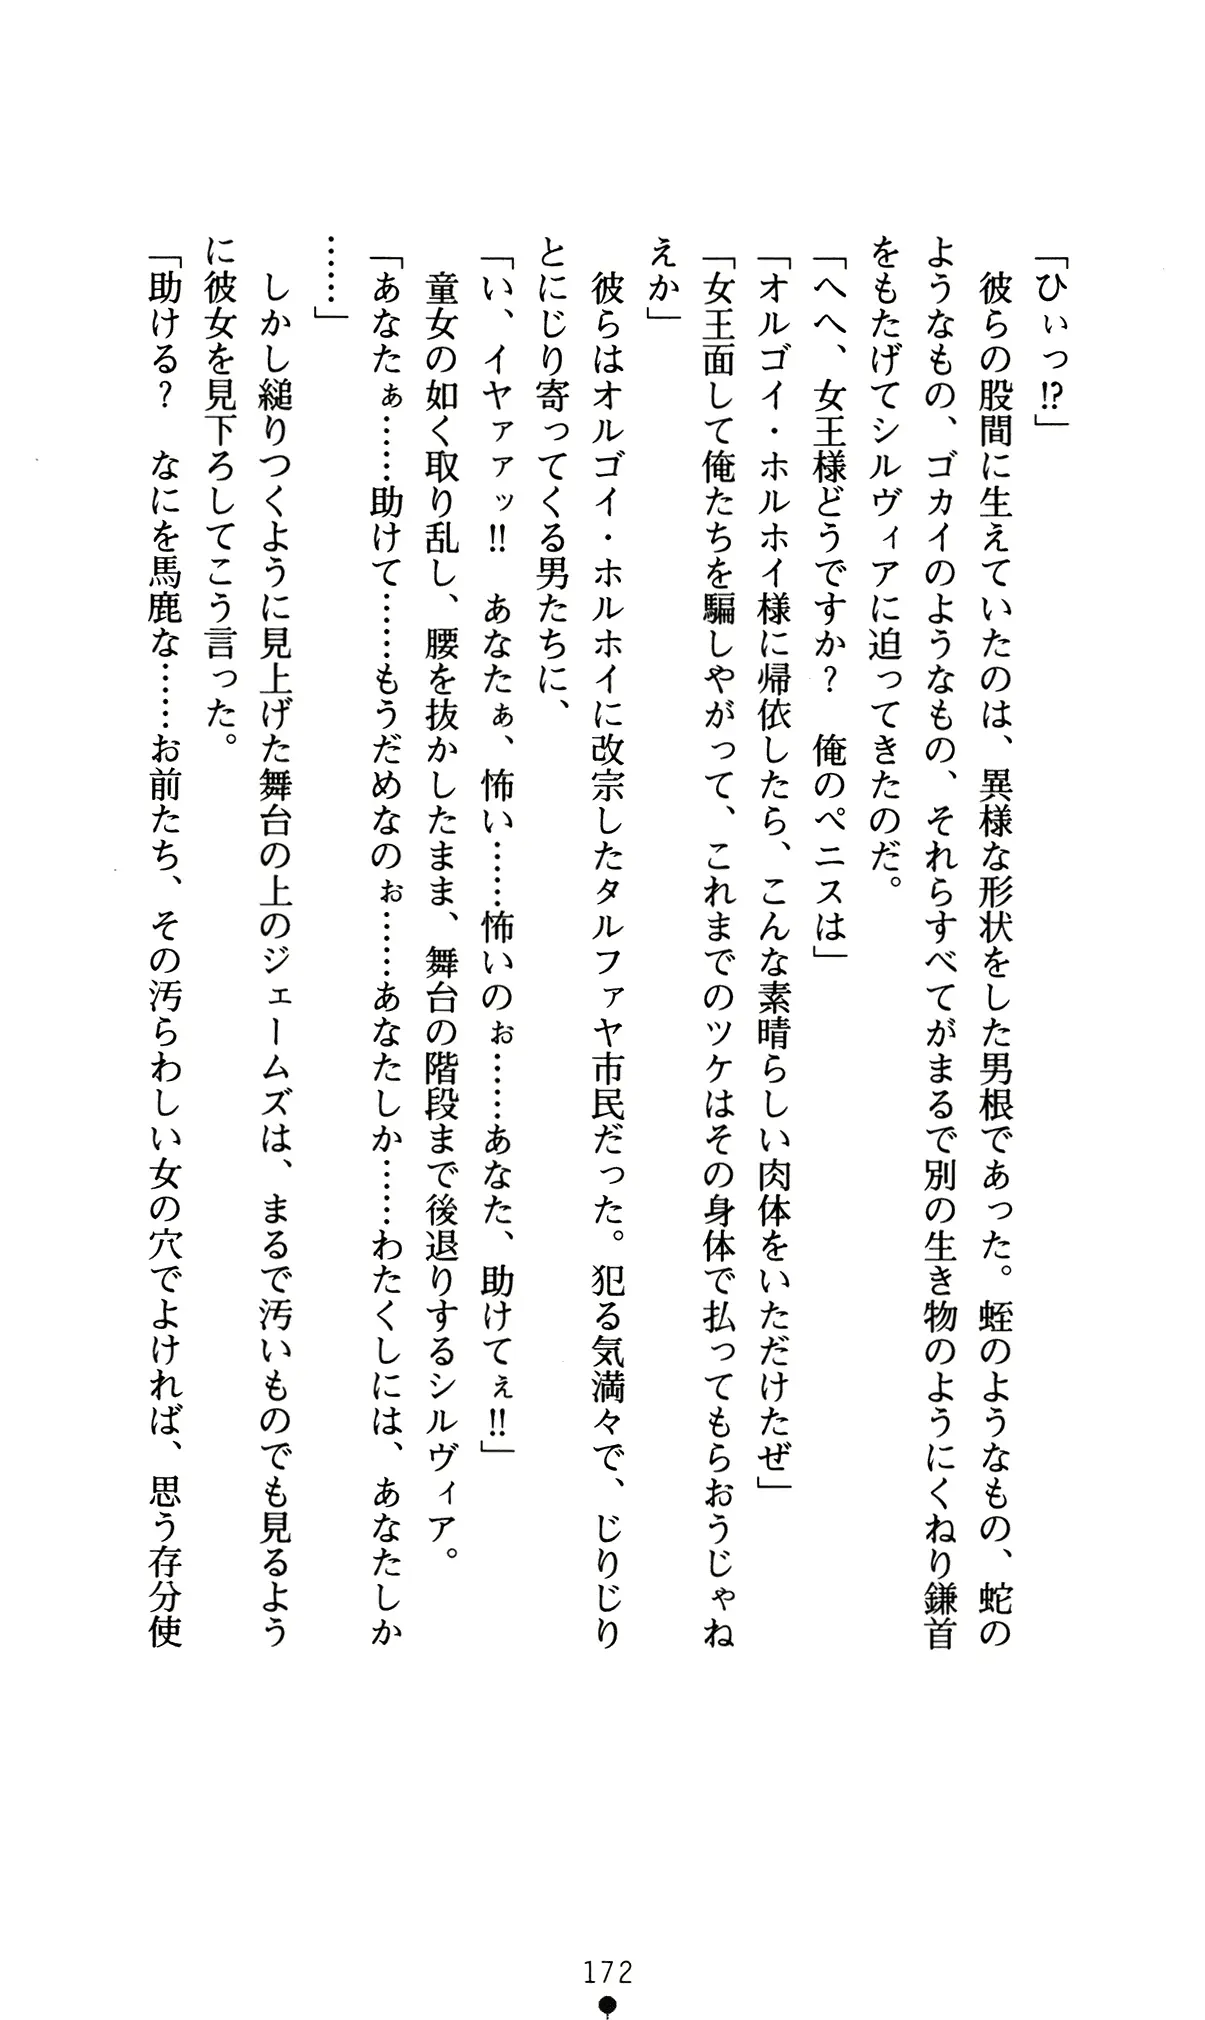 「ひぃっ!?」
　彼らの股間に生えていたのは、異様な形状をした男根であった。蛭のようなもの、蛇の
ようなもの、ゴカイのようなもの、それらすべてがまるで別の生き物のようにくねり鎌首
をもたげてシルヴィアに迫ってきたのだ。
「へへ、女王様どうですか？　俺のペニスは」
「オルゴイ・ホルホイ様に帰依したら、こんな素晴らしい肉体をいただけたぜ」
「女王面して俺たちを騙しやがって、これまでのツケはその身体で払ってもらおうじゃね
えか」
　彼らはオルゴイ・ホルホイに改宗したタルファヤ市民だった。犯る気満々で、じりじり
とにじり寄ってくる男たちに、
「い、イヤァァッ!!　あなたぁ、怖い……怖いのぉ……あなた、助けてぇ!!」
　童女の如く取り乱し、腰を抜かしたまま、舞台の階段まで後退りするシルヴィア。
「あなたぁ……助けて……もうだめなのぉ……あなたしか……わたくしには、あなたしか
……」
　しかし縋りつくように見上げた舞台の上のジェームズは、まるで汚いものでも見るよう
に彼女を見下ろしてこう言った。
「助ける？　なにを馬鹿な……お前たち、その汚らわしい女の穴でよければ、思う存分使
172